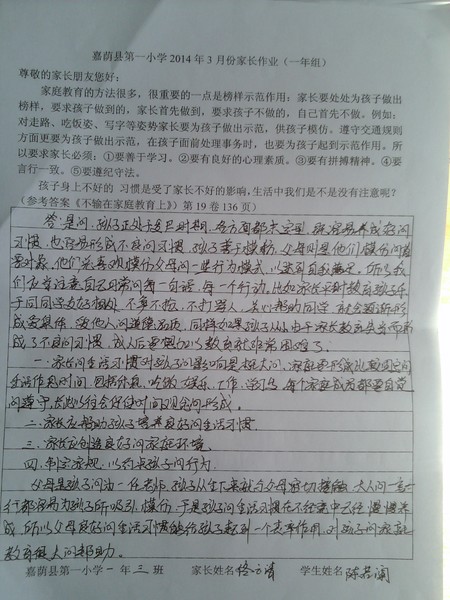 嘉荫县第一小学2014年3月份家长作业（一年组）
尊敬的家长朋友您好：
家庭教育的方法很多，很重要的一点是榜样示范作用：家长要处处为孩子做出
榜样，要求孩子做到的，家长首先做到，要求孩子不做的，自己首先不做。例如：
对走路、吃饭姿、写字等姿势家长要为孩子做出示范，供孩子模仿。遵守交通规则
方面更要为孩子做出示范，在孩子面前处理事务时，也要为孩子起到示范作用。所
以要求家长必须：①要善于学习。②要有良好的心理素质。③要有拼搏精神。④要
言行一致。⑤要遵纪守法。
孩子身上不好的 习惯是受了家长不好的影响，生活中我们是不是没有注意呢？
（参考答案《不输在家庭教育上》）第19卷136页）
答：是的，孩子正处于各方面都未定型，既容易养成好的
习惯，也容易形成不良的习惯，孩子善于模仿，父母则是他们模仿的首
要对象，他们会客观模仿父母的一些行为模式，以达到自我满足。所以我
们应当注意自己日常的每一句话，每一个行动，比如家长平时教育孩子乐
于同同学友好相处，不争不抢，不打骂人，关心帮助同学，就会
成受集体
成了不良的习惯，成人后要想加以教育就非常困难了。
一、家长的生活习惯对孩子的影响是极大的，家庭要形成比较固定的
生活作息时间，包括休息、吃饭、娱乐、工作、学习等，每个家庭成员都要自觉
的遵守，长此以往会促使时间观念的形成。
二、家长应帮助孩子培养良好的生活习惯。
三、家长应创造良好的家庭环境。
四、制定家规，以约束孩子的行为
父母是孩子的第一任老师，孩子从生下来就与父母密切接触，大人的一言一
行都容易为孩子所吸引、模仿，于是孩子的生活习惯在不经意中已经慢慢养
成，所以父母良好的生活习惯能给孩子起到一个表率作用，对孩子的家庭
教育很大的帮助。
嘉荫县第一小学一年三班 家长姓名 学生姓名 陈